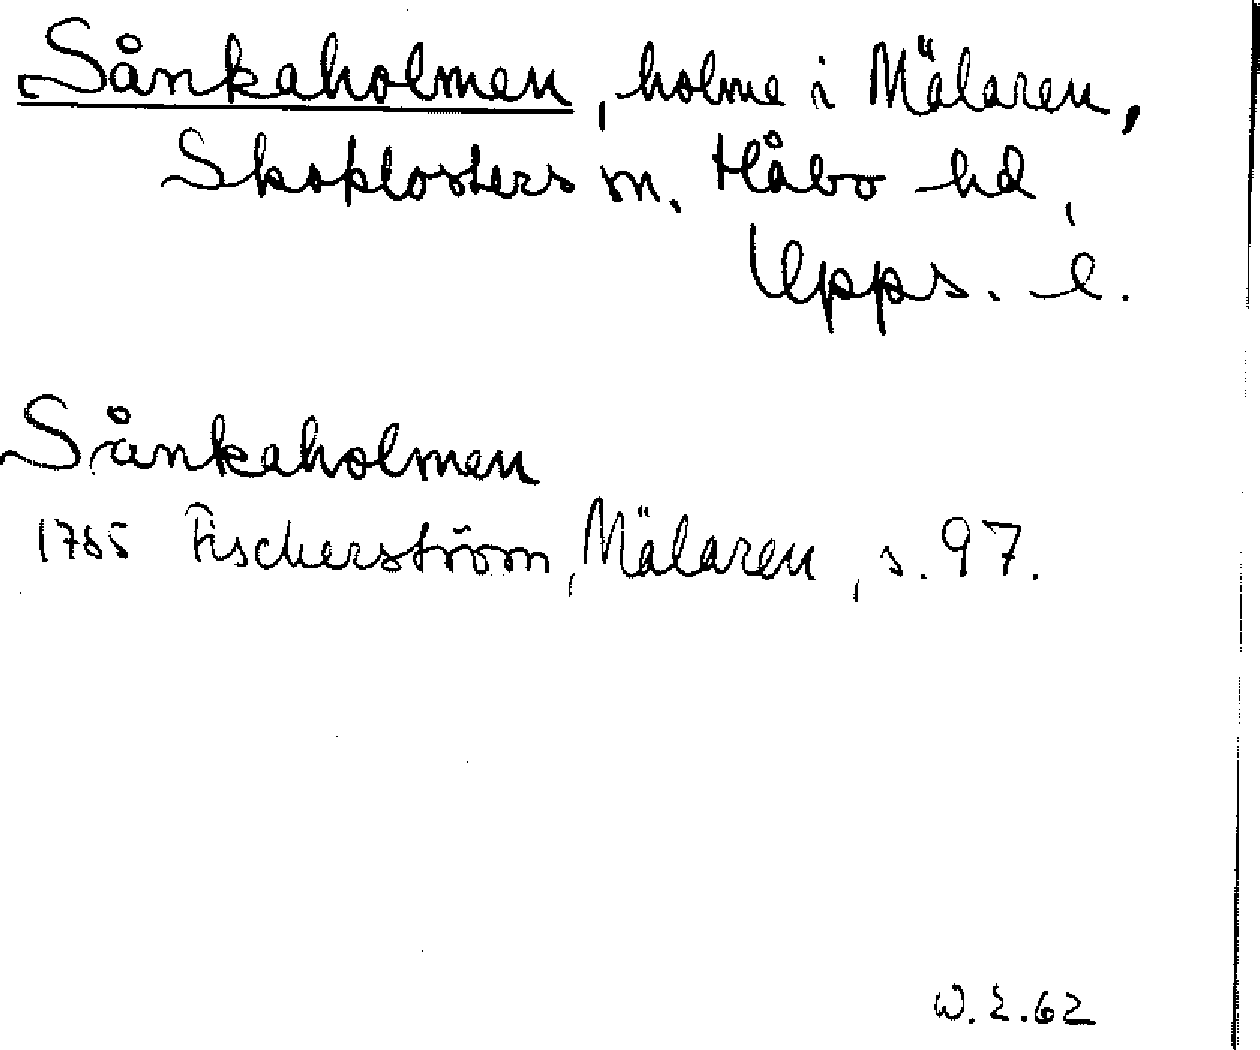 Sånkaholmen, holme i Mälaren,
Skoklosters sn. Håbo hd,
Upps. l.
Sånkaholmen
1785 Fischerström, Mälaren, s. 97.
W.E.62